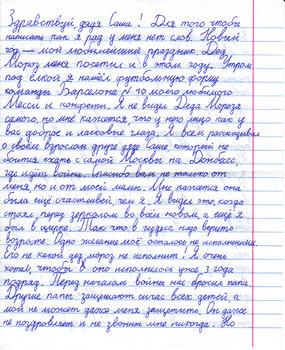 Здравствуй, дядя Саша! Для того чтобы
написать как я рад у меня нет слов. Новый
год — мой любимейший праздник. Дед
Мороз меня посетил и в этом году. Утром
под ёлкой я нашёл футбольную форму
команды Барселона N 10 моего любимого
Месси и конфеты. Я не видел Деда Мороза
самого, но мне кажется, что у него лицо как у
вас доброе и ласковые глаза. Я всем рассказываю
о своём взрослом друге дяде Саше, который не
боится ехать с самой Москвы на Донбасс,
где идёт война. Спасибо вам не только от
меня но и от моей мамы. Мне кажется она
была ещё счастливей, чем я. Я видел это, когда
стоял перед зеркалом во всём новом, а ещё я
был в цирке. Так что в чудеса надо верить
возрасте. Одно желание моё осталось не исполнимым
Его не какой дед мороз не исполнит! Я очень
хотел, чтобы оно исполнилось уже 3 года
подряд. Перед началом войны нас бросил папа.
Другие папы защищают сичас всех детей, а
мой не может даже меня защитить. Он даже
не поздровляет и не звонит мне никогда. Но